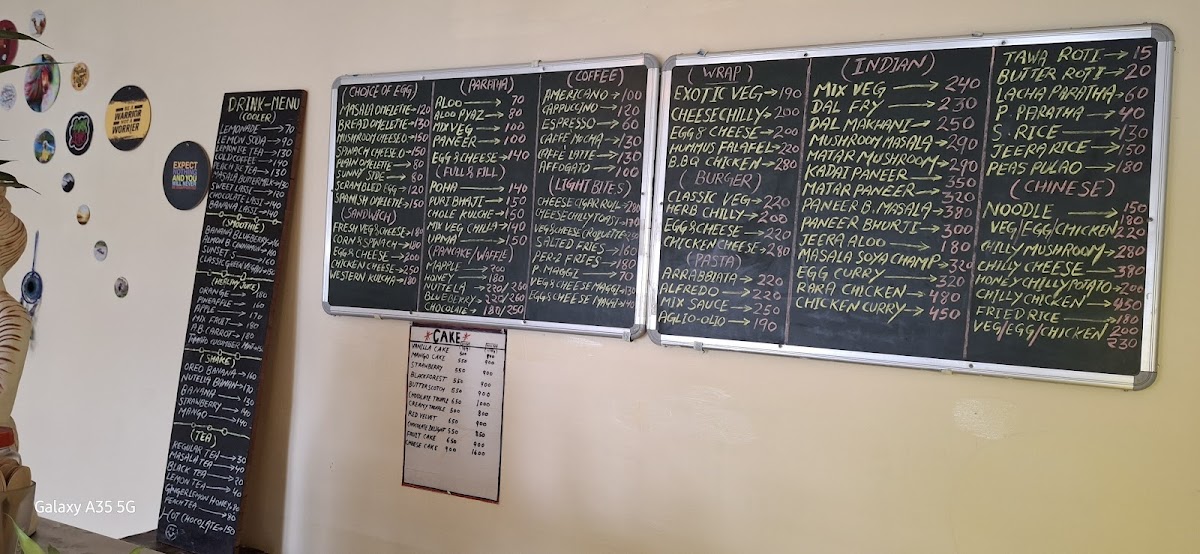 BE A
WARRIOR
NOT A
WORRIER
EXPECT
NOTHING
AND YOU
WILL NEVER
DRINK-MENU
(COOLER)
LEMONADE → 70
LEMON SODA → 90
LEMON ICE TEA → 130
COLD COFFEE → 190
PEACH TEA → 130
MASALA BUTTERMILK → 130
SWEET LASSI
CHOCOLATE LASSI → 140
BANANA LASSI → 140
(SMOOTHIE)
BANANA BLUEBERRY
SUNSET S → 160
CLASSIC GREEN
ORANGE → 180
PINEAPPLE
APPLE → 170
MIX FRUIT → 180
A.B CARROT → 180
(SHAKE)
OREO BANANA → 160
NUTELLA BANANA → 170
BANANA → 130
STRAWBERRY → 140
MANGO → 140
(TEA)
REGULAR TEA → 30
MASALA TEA → 40
BLACK TEA → 20
LEMON TEA → 40
GINGER LEMON HONEY
PEACH TEA → 80
HOT CHOCOLATE → 150
CHOICE OF EGG)
MASALA OMELETTE → 120
BREAD OMELETTE → 130
MUSHROOM OMELETTE
SPANACH CHEESE O → 150
PLAIN OMELETTE → 80
SUNNY SIDE → 80
SCRAMBLED EGG → 120
SPANISH OMELETTE → 150
(SANDWICH)
FRESH VEG & CHEESE → 180
CORN & SPINACH → 180
EGG & CHEESE → 200
CHICKEN CHEESE → 250
WESTERN KULCHA → 180
(PARATHA)
ALOO → 70
ALOO PYAZ → 80
MIX VEG → 100
PANEER → 100
EGG & CHEESE → 140
(FULL & FILL)
POHA → 140
PURI BHAJI → 150
CHOLE KULCHE → 150
MIX VEG CHILLA → 140
UPMA → 150
(PANCAKE/WAFFLE)
MAPPLE → 200
HONEY → 180
NUTELLA → 220/260
BLUEBERRY → 220/260
CHOCOLATE → 180/250
(COFFEE)
AMERICANO → 100
CAPPUCCINO → 120
ESPRESSO → 60
CAFFE MOCHA → 130
CAFFE LATTE → 130
AFFOGATO → 100
(LIGHT BITES)
CHEESE CIGAR ROLL
CHEESE CHILLY TOAST
VEG & CHEESE CROQUETTE
SALTED FRIES → 160
PERI-2 FRIES → 180
P. MAGGI → 70
VEG & CHEESE MAGGI → 130
EGG & CHEESE MAGGI → 140
(WRAP)
EXOTIC VEG → 190
CHEESE CHILLY → 200
EGG & CHEESE → 200
HUMMUS FALAFEL → 220
B.B.Q CHICKEN → 280
(BURGER)
CLASSIC VEG → 220
HERB CHILLY → 200
EGG & CHEESE → 220
CHICKEN CHEESE → 280
(PASTA)
ARRABBIATA → 220
ALFREDO → 220
MIX SAUCE → 250
AGLIO-OLIO → 190
(INDIAN)
MIX VEG → 240
DAL FRY → 230
DAL MAKHANI → 250
MUSHROOM MASALA → 290
MATAR MUSHROOM → 290
KADAI PANEER → 350
MATAR PANEER → 320
PANEER B. MASALA → 380
PANEER BHURJI → 300
JEERA ALOO → 180
MASALA SOYA CHAMP → 320
EGG CURRY → 320
RARA CHICKEN → 480
CHICKEN CURRY → 450
TAWA ROTI → 15
BUTTER ROTI → 20
LACHA PARATHA → 60
P. PARATHA → 40
S. RICE → 130
JEERA RICE → 150
PEAS PULAO → 180
(CHINESE)
NOODLE → 150
VEG/EGG/CHICKEN 180 220
CHILLY MUSHROOM → 280
CHILLY CHEESE → 380
HONEY CHILLY POTATO → 200
CHILLY CHICKEN → 450
FRIED RICE → 180
VEG/EGG/CHICKEN 200 230
*CAKE*
VANILLA CAKE
MANGO CAKE
STRAWBERRY 550 900
BLACKFOREST 550 900
BUTTERSCOTCH 550 900
CHOCOLATE TRUFFLE 650 1000
CREAMY TRUFFLE 500 800
RED VELVET 650 900
CHOCOLATE DELIGHT 550 850
FRUIT CAKE 650 900
CHEESE CAKE 900 1600
Galaxy A35 5G